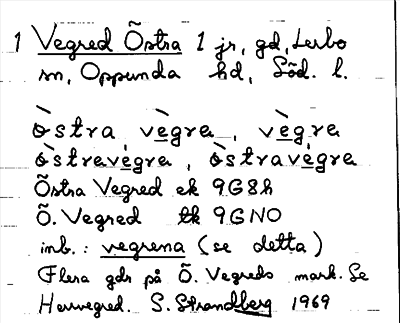 1 Vegred Östra 1 jr, gd, Lerbo
sn, Oppunda hd, Söd. l.
òstra vègre, vègra
òstravègra, òstravègra
Östra Vegred ek 9G8h
Ö. Vegred tk 9GNO
inb.: vegrena (se detta)
Flera gdr på Ö. Vegreds mark. Se
Herrvegred. S. Strandberg 1969